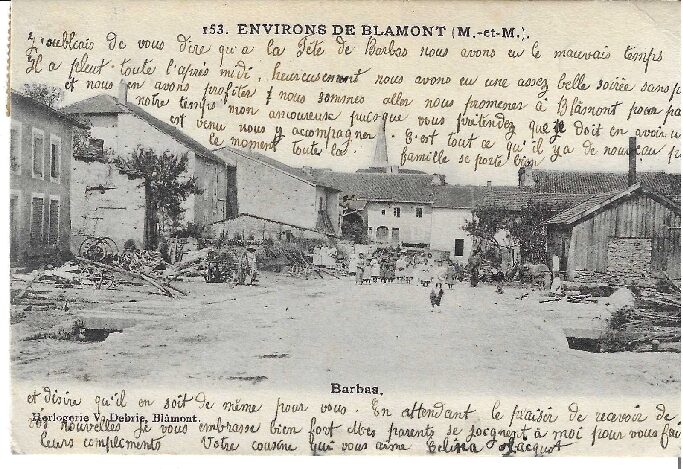 153. ENVIRONS DE BLAMONT (M.-et-M.).
J'oubliais de vous dire qu'a la Fête de Barbas nous avons eu le mauvais temps
Il a pleut toute l'après midi, heureusement nous avons eu une assez belle soirée sans
et nous en avons profiter nous sommes aller nous promener à Blâmont pour
notre temps mon amoureux puisque vous prétendez que je doit en avoir
est venu nous y accompagner. C'est tout ce qu'il y a de nouveau
le moment toute la famille se porte bien
Barbas.
et désire qu'il en soit de même pour vous. En attendant le plaisir de recevoir de
Horlogerie V. Debrie, Blâmont.
vos nouvelles Je vous embrasse bien fort Mes parents se joignent à moi pour vous
leurs compliments Votre cousine qui vous aime Célina Jacquot